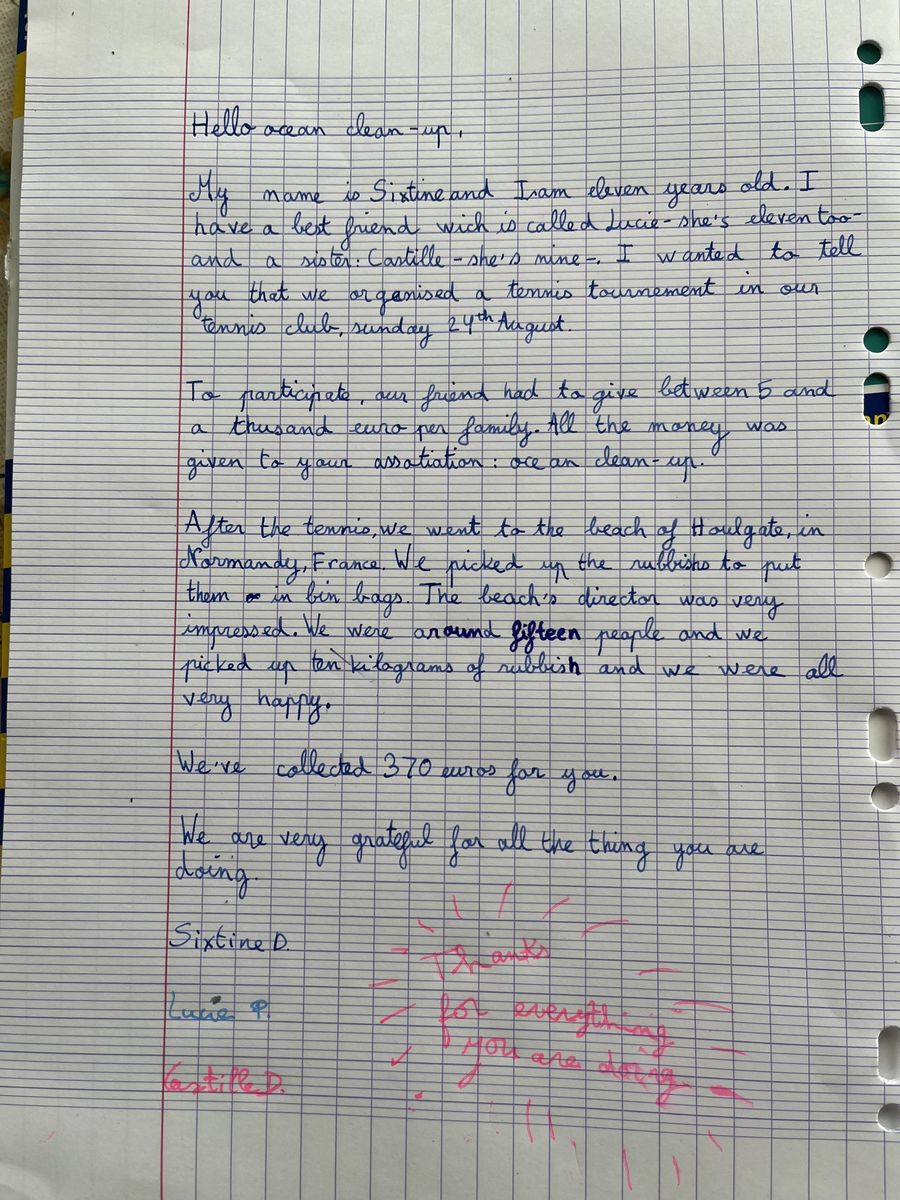 Hello ocean clean-up,
My name is Sixtine and I am eleven years old. I
have a best friend wich is called Lucie - she's eleven too -
and a sister: Castille - she's nine -. I wanted to tell
you that we organised a tennis tournement in our
tennis club, sunday 24th August.
To participate, our friend had to give between 5 and
a thusand euro per family. All the money was
given to your assotiation : ocean clean-up.
After the tennis, we went to the beach of Houlgate, in
Normandy, France. We picked up the rubbishs to put
them in bin bags. The beach's director was very
impressed. We were around fifteen people and we
picked up ten kilograms of rubbish and we were all
very happy.
We've collected 370 euros for you.
We are very grateful for all the thing you are
doing.
Sixtine D.
Lucie P.
Castille D.
Thanks
for everything
you are doing